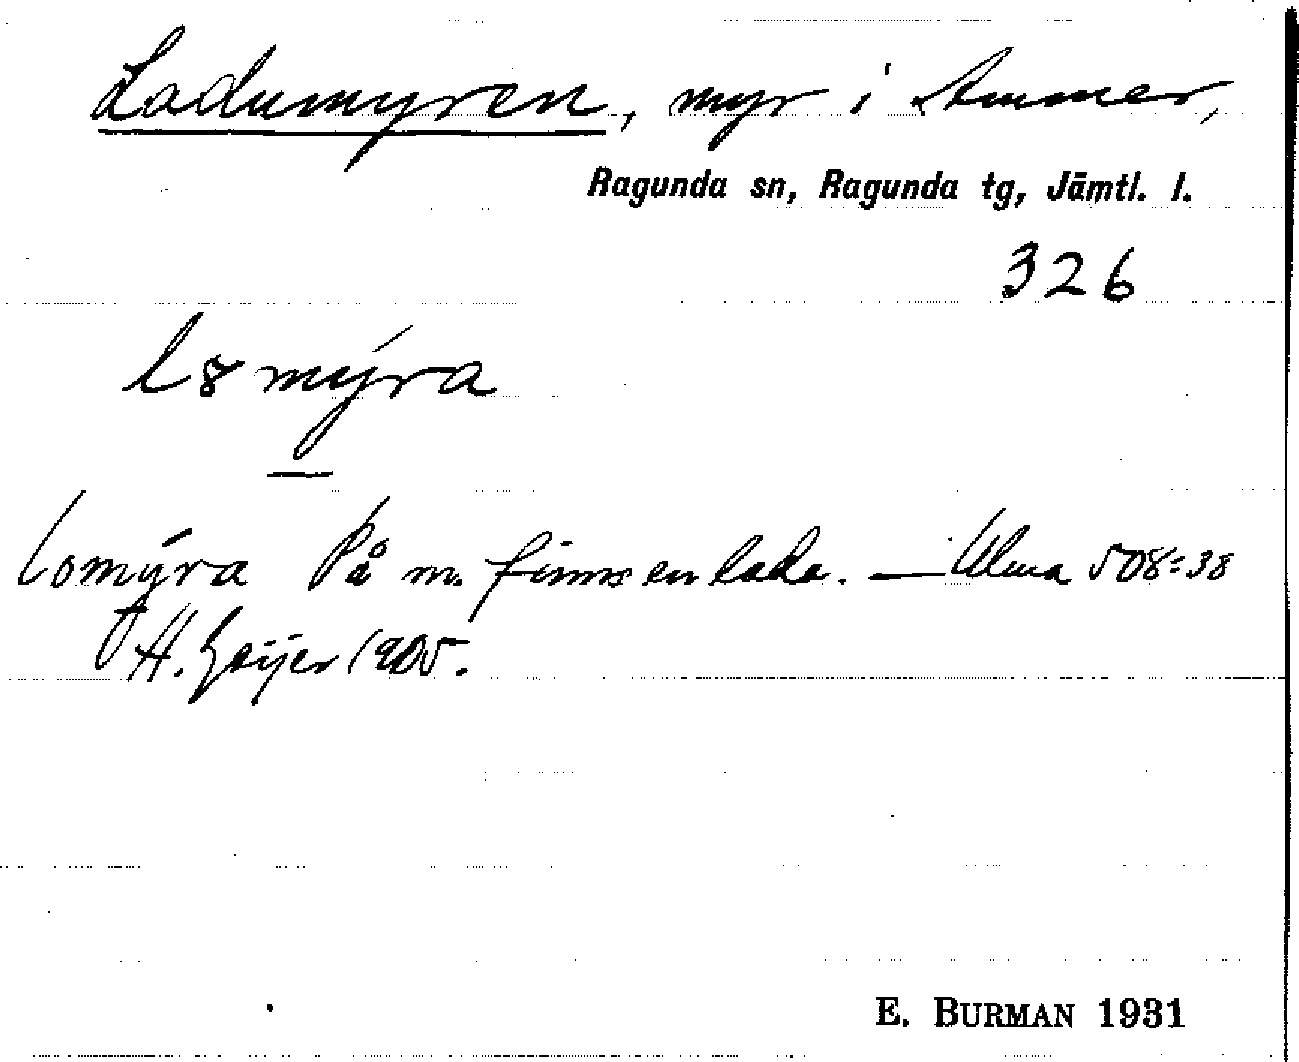 Ladumyren, myr i Ammer,
Ragunda sn, Ragunda tg, Jämtl. l.
326
l8mýra
lomýra På m. finns en lada. — Ulma 508:38
H. Geijer 1905.
E. BURMAN 1931